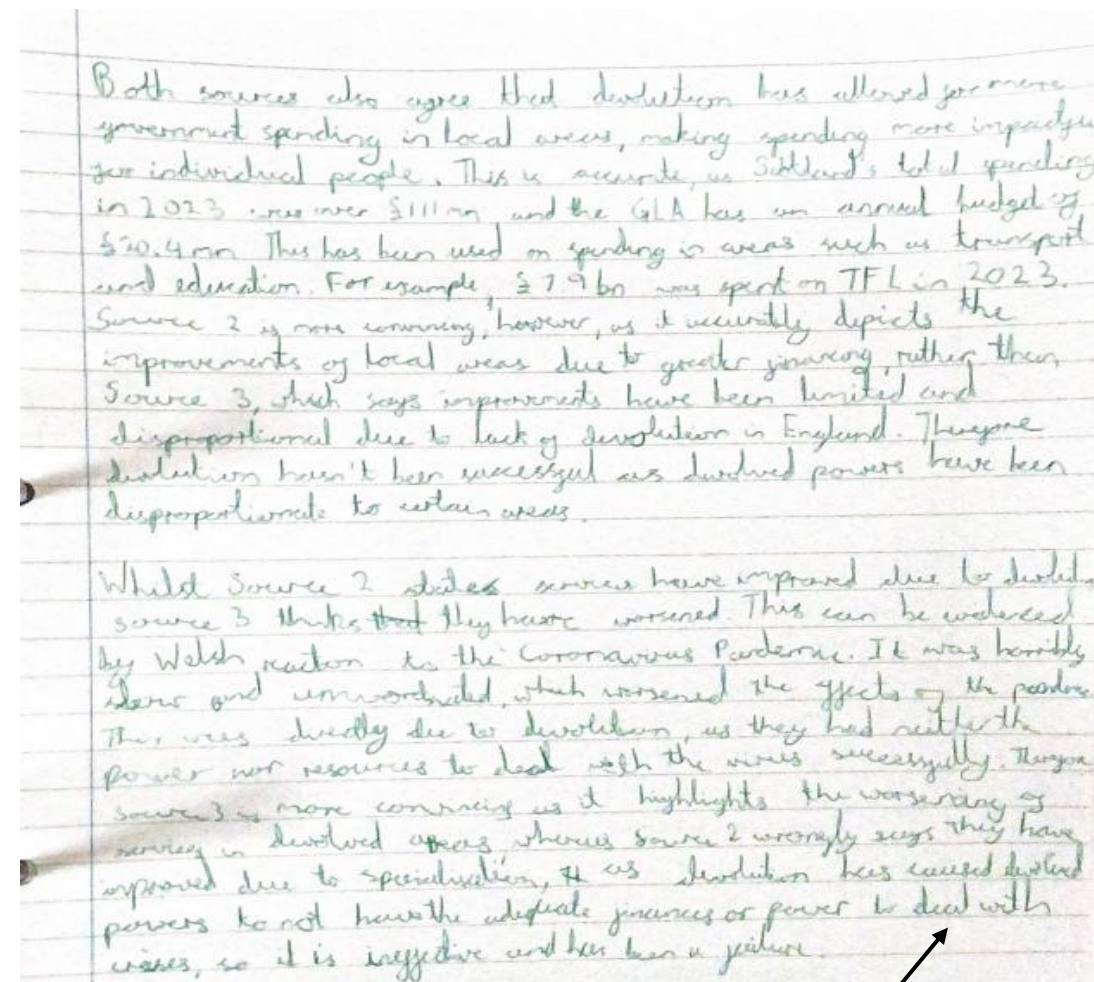 Both sources also agree that devolution has allowed for more
government spending in local areas, making spending more impactful
for individual people. This is accurate, as Scotland's total spending
in 2023 was over £111 mn, and the GLA has an annual budget of
£20.4 mn This has been used on spending in areas such as transport
and education. For example, £7.9 bn was spent on TFL in 2023.
Source 2 is more convincing, however, as it accurately depicts the
improvements of local areas due to greater financing rather than
Source 3, which says improvements have been limited and
disproportional due to lack of devolution in England. Therefore
devolution hasn't been successful as devolved powers have been
disproportionate to certain areas.
Whilst Source 2 states services have improved due to
source 3 thinks that they have worsened. This can be evidenced
by Welsh reaction to the Coronavirus Pandemic. It was horribly
slow and uncoordinated, which worsened the effects of the
This was directly due to devolution, as they had neither the
power nor resources to deal with the virus successfully. Therefore
source 3 is more convincing as it highlights the worsening of
services in devolved areas whereas Source 2 wrongly says they have
improved due to specialisation, as devolution has caused devolved
powers to not have the adequate finances or power to deal with
crises, so it is ineffective and has been a failure.